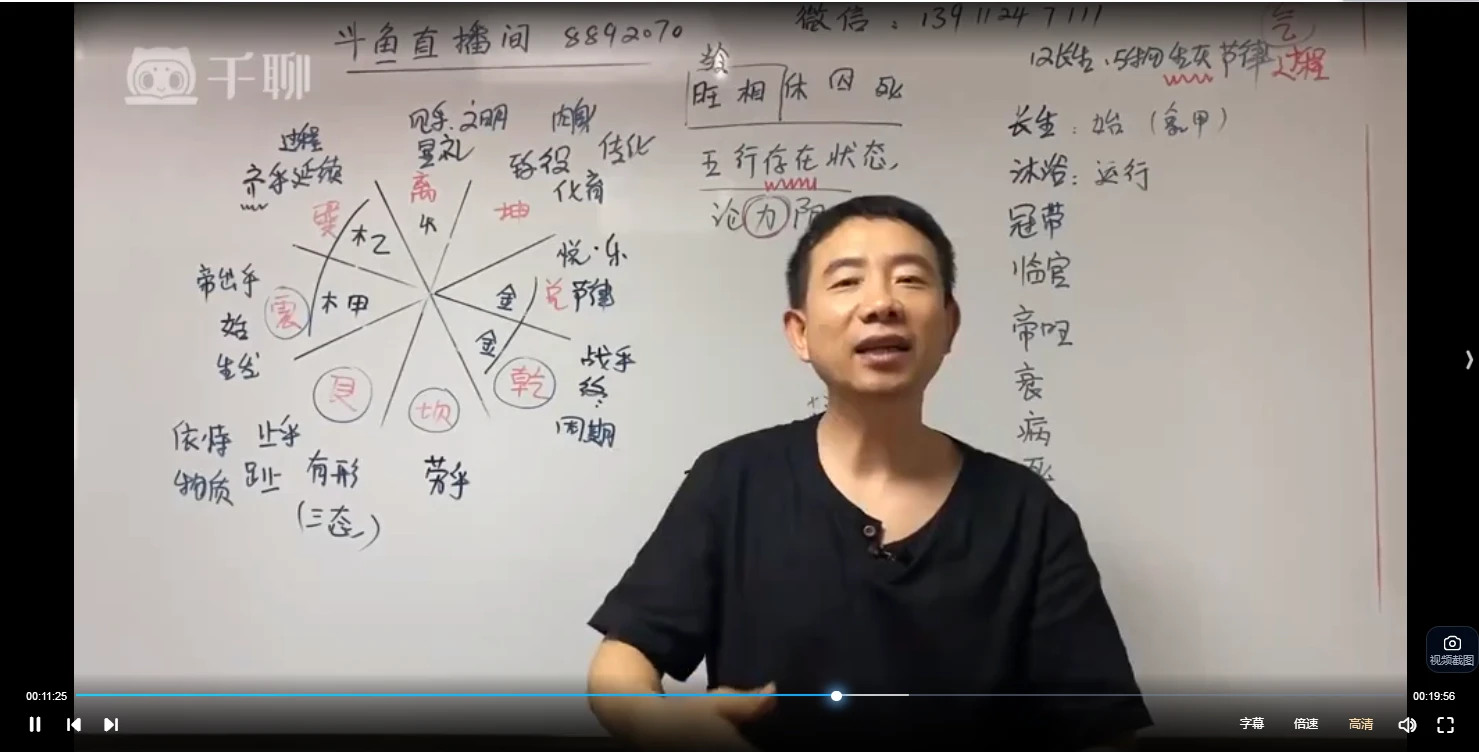 斗鱼直播间 8892070
微信：13911247111
千聊
12长生：5物生灭节律
过程
气
旺相休囚死
五行存在状态
论力阴
长生：始（亥甲）
沐浴：运行
冠带
临官
帝旺
衰
病
死
过程
齐乎延续
巽
木乙
见乎 文明
显礼
离
火
肉身
致役 传化
化育
坤
悦·乐
兑 节律
金
金
战乎
终
周期
乾
帝出乎
始
生发
震
木甲
艮
坎
劳乎
依恃 止乎
物质 趾 有形
（三态）
00:11:25
00:19:56
字幕
倍速
高清
视频截图